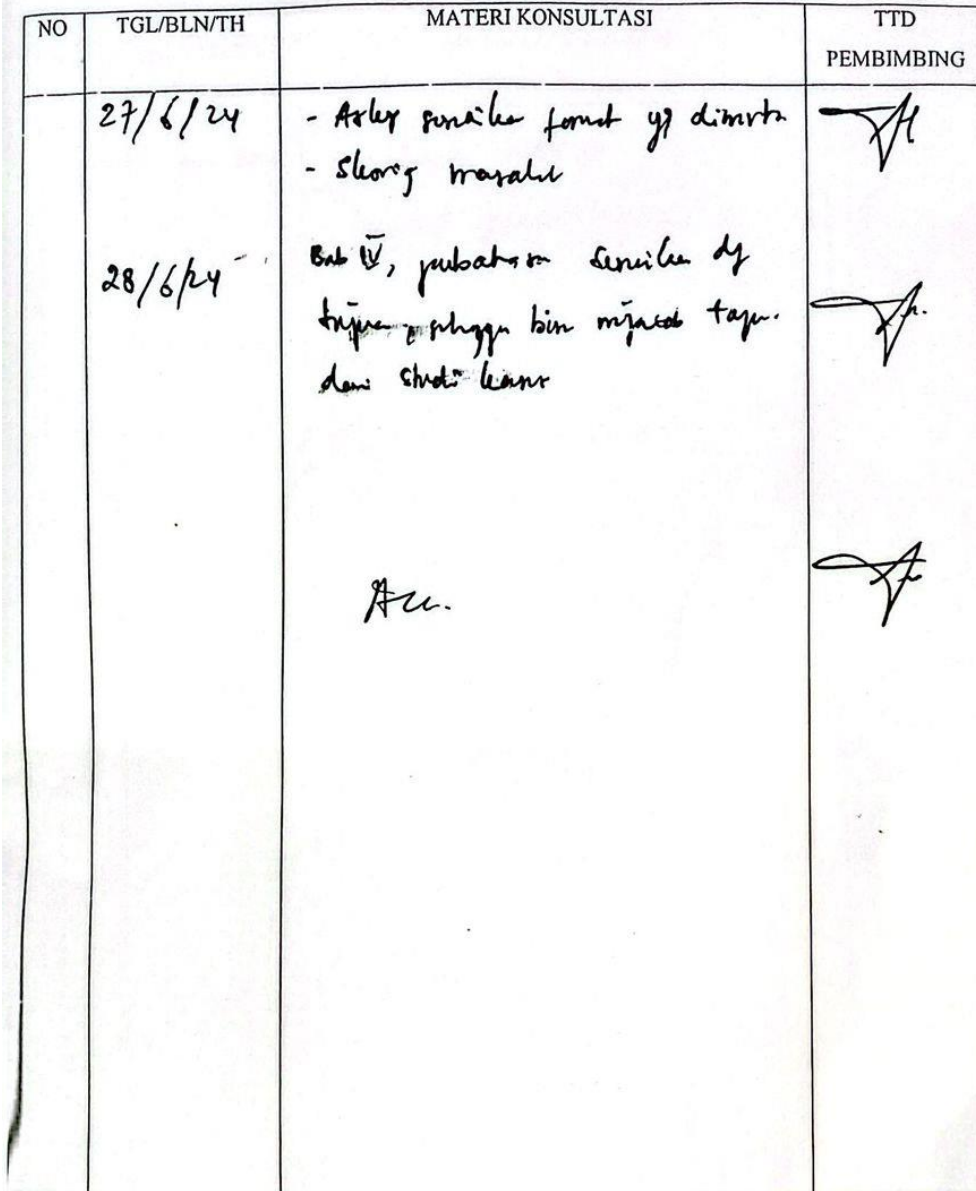 NO TGL/BLN/TH MATERI KONSULTASI TTD
PEMBIMBING
27/6/24 - Askep sesuaikan format yg diminta
- Skoring masalah
28/6/24 Bab IV, pembahasan sesuaikan dg
tujuan, sehingga bisa menjawab tujuan
dari studi kasus
Acc.